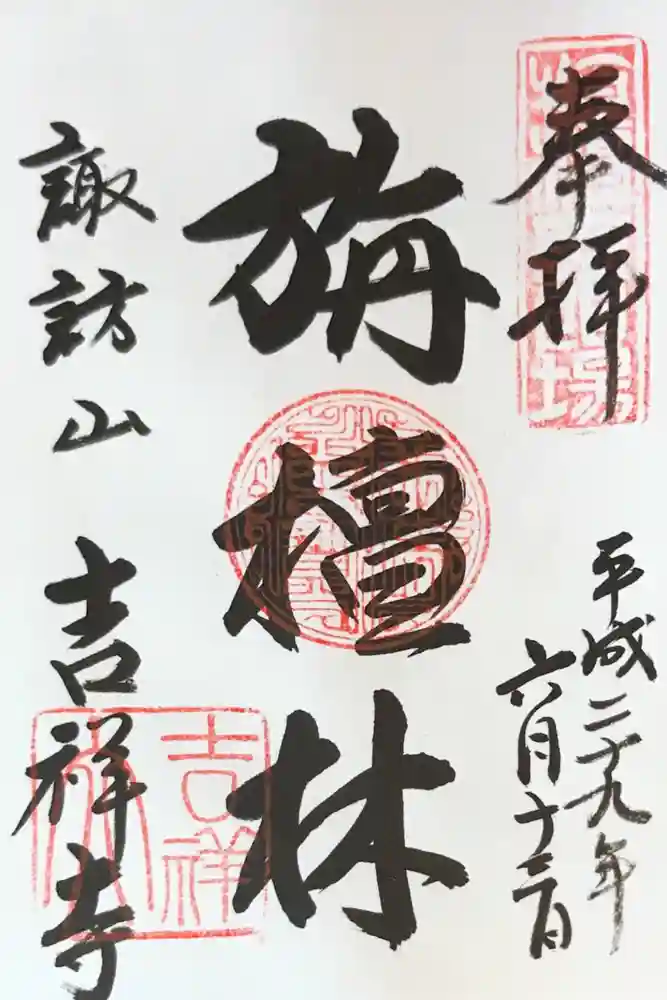 奉拝
平成二十九年
六月十三日
旃檀林
諏訪山 吉祥寺
吉祥
寺